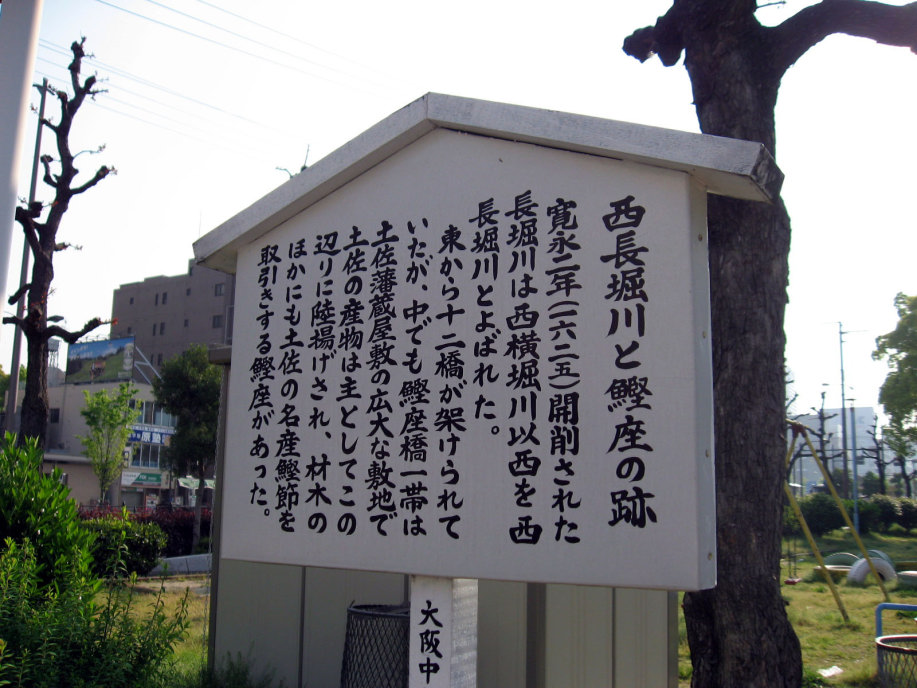 西長堀川と鰹座の跡
寛永二年(一六二五)開削された
長堀川は西横堀川以西を西
長堀川とよばれた。
東から十二橋が架けられて
いたが、中でも鰹座橋一帯は
土佐藩蔵屋敷の広大な敷地で
土佐の産物は主としてこの
辺りに陸揚げされ、材木の
ほかにも土佐の名産鰹節を
取引きする鰹座があった。
大阪中